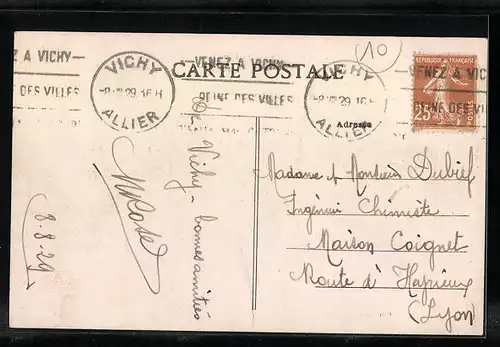 Z A VICHY— VICHY —VENEZ A VICHY— VICHY —VENEZ A VICHY
DES VILLES 8-VIII 29 16H REINE DES VILLES 8-VIII 29 16H REINE DES VILLES
ALLIER ALLIER
(10)
CARTE POSTALE
Adresse
REPUBLIQUE FRANÇAISE
25c
POSTES
De Vichy – bonnes amitiés
8.8.29
Madame et Monsieur Dubief
Ingénieur Chimiste
Maison Coignet
Route d'Heyrieux
(Lyon)